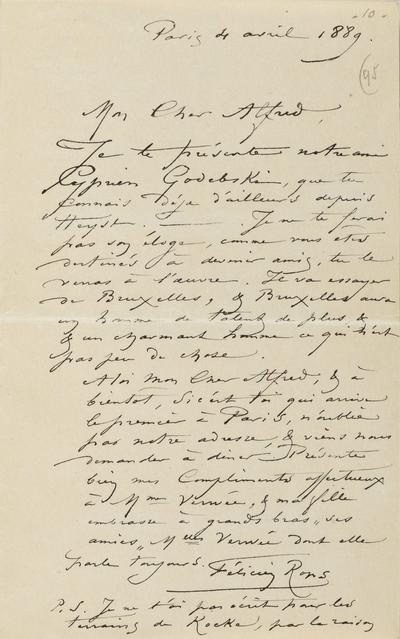 - 10 -
Paris 4 avril 1889.
(95
Mon Cher Alfred,
Je te présente notre ami
Cyprien Godebski, que tu
connais déjà d'ailleurs depuis
Heyst. — Je ne te ferai
pas son éloge, comme vous êtes
destinés à devenir amis, tu le
verras à l'œuvre. Je va essayer
de Bruxelles, & Bruxelles aura
un homme de talent de plus &
& un charmant homme ce qui n'est
pas peu de chose.
A toi mon Cher Alfred, & à
bientôt, si c'est toi qui arrive
le premier à Paris, n'oublie
pas notre adresse, & viens nous
demander à diner. Présente
bien mes Compliments affectueux
à Mme Verwée, & ma fille
embrasse à grands bras „ses
amies„ Melles Verwée dont elle
parle toujours. Félicien Rops
P.S. Je ne t'ai pas écrit pour les
terrains de Knocke, par la raison